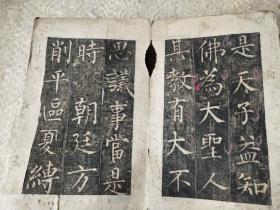 是天子益知
佛為大聖人
其教有大不
思議事當是
時朝廷方
削平區夏縛